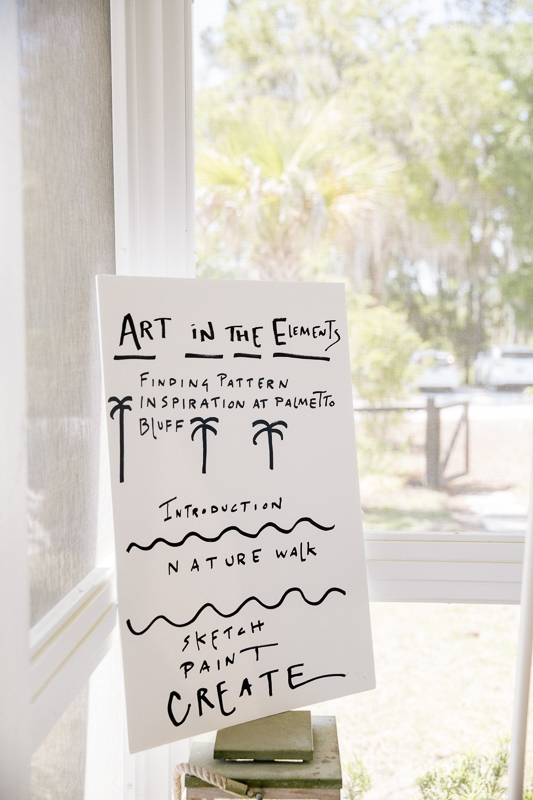 ART iN THE ELEMENTS
FINDING PATTERN
INSPIRATION AT PALMETTO
BLUFF
INTRODUCTION
NATURE WALK
SKETCH
PAINT
CREATE